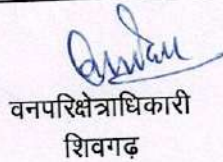 वनपरिक्षेत्राधिकारी
शिवगढ़